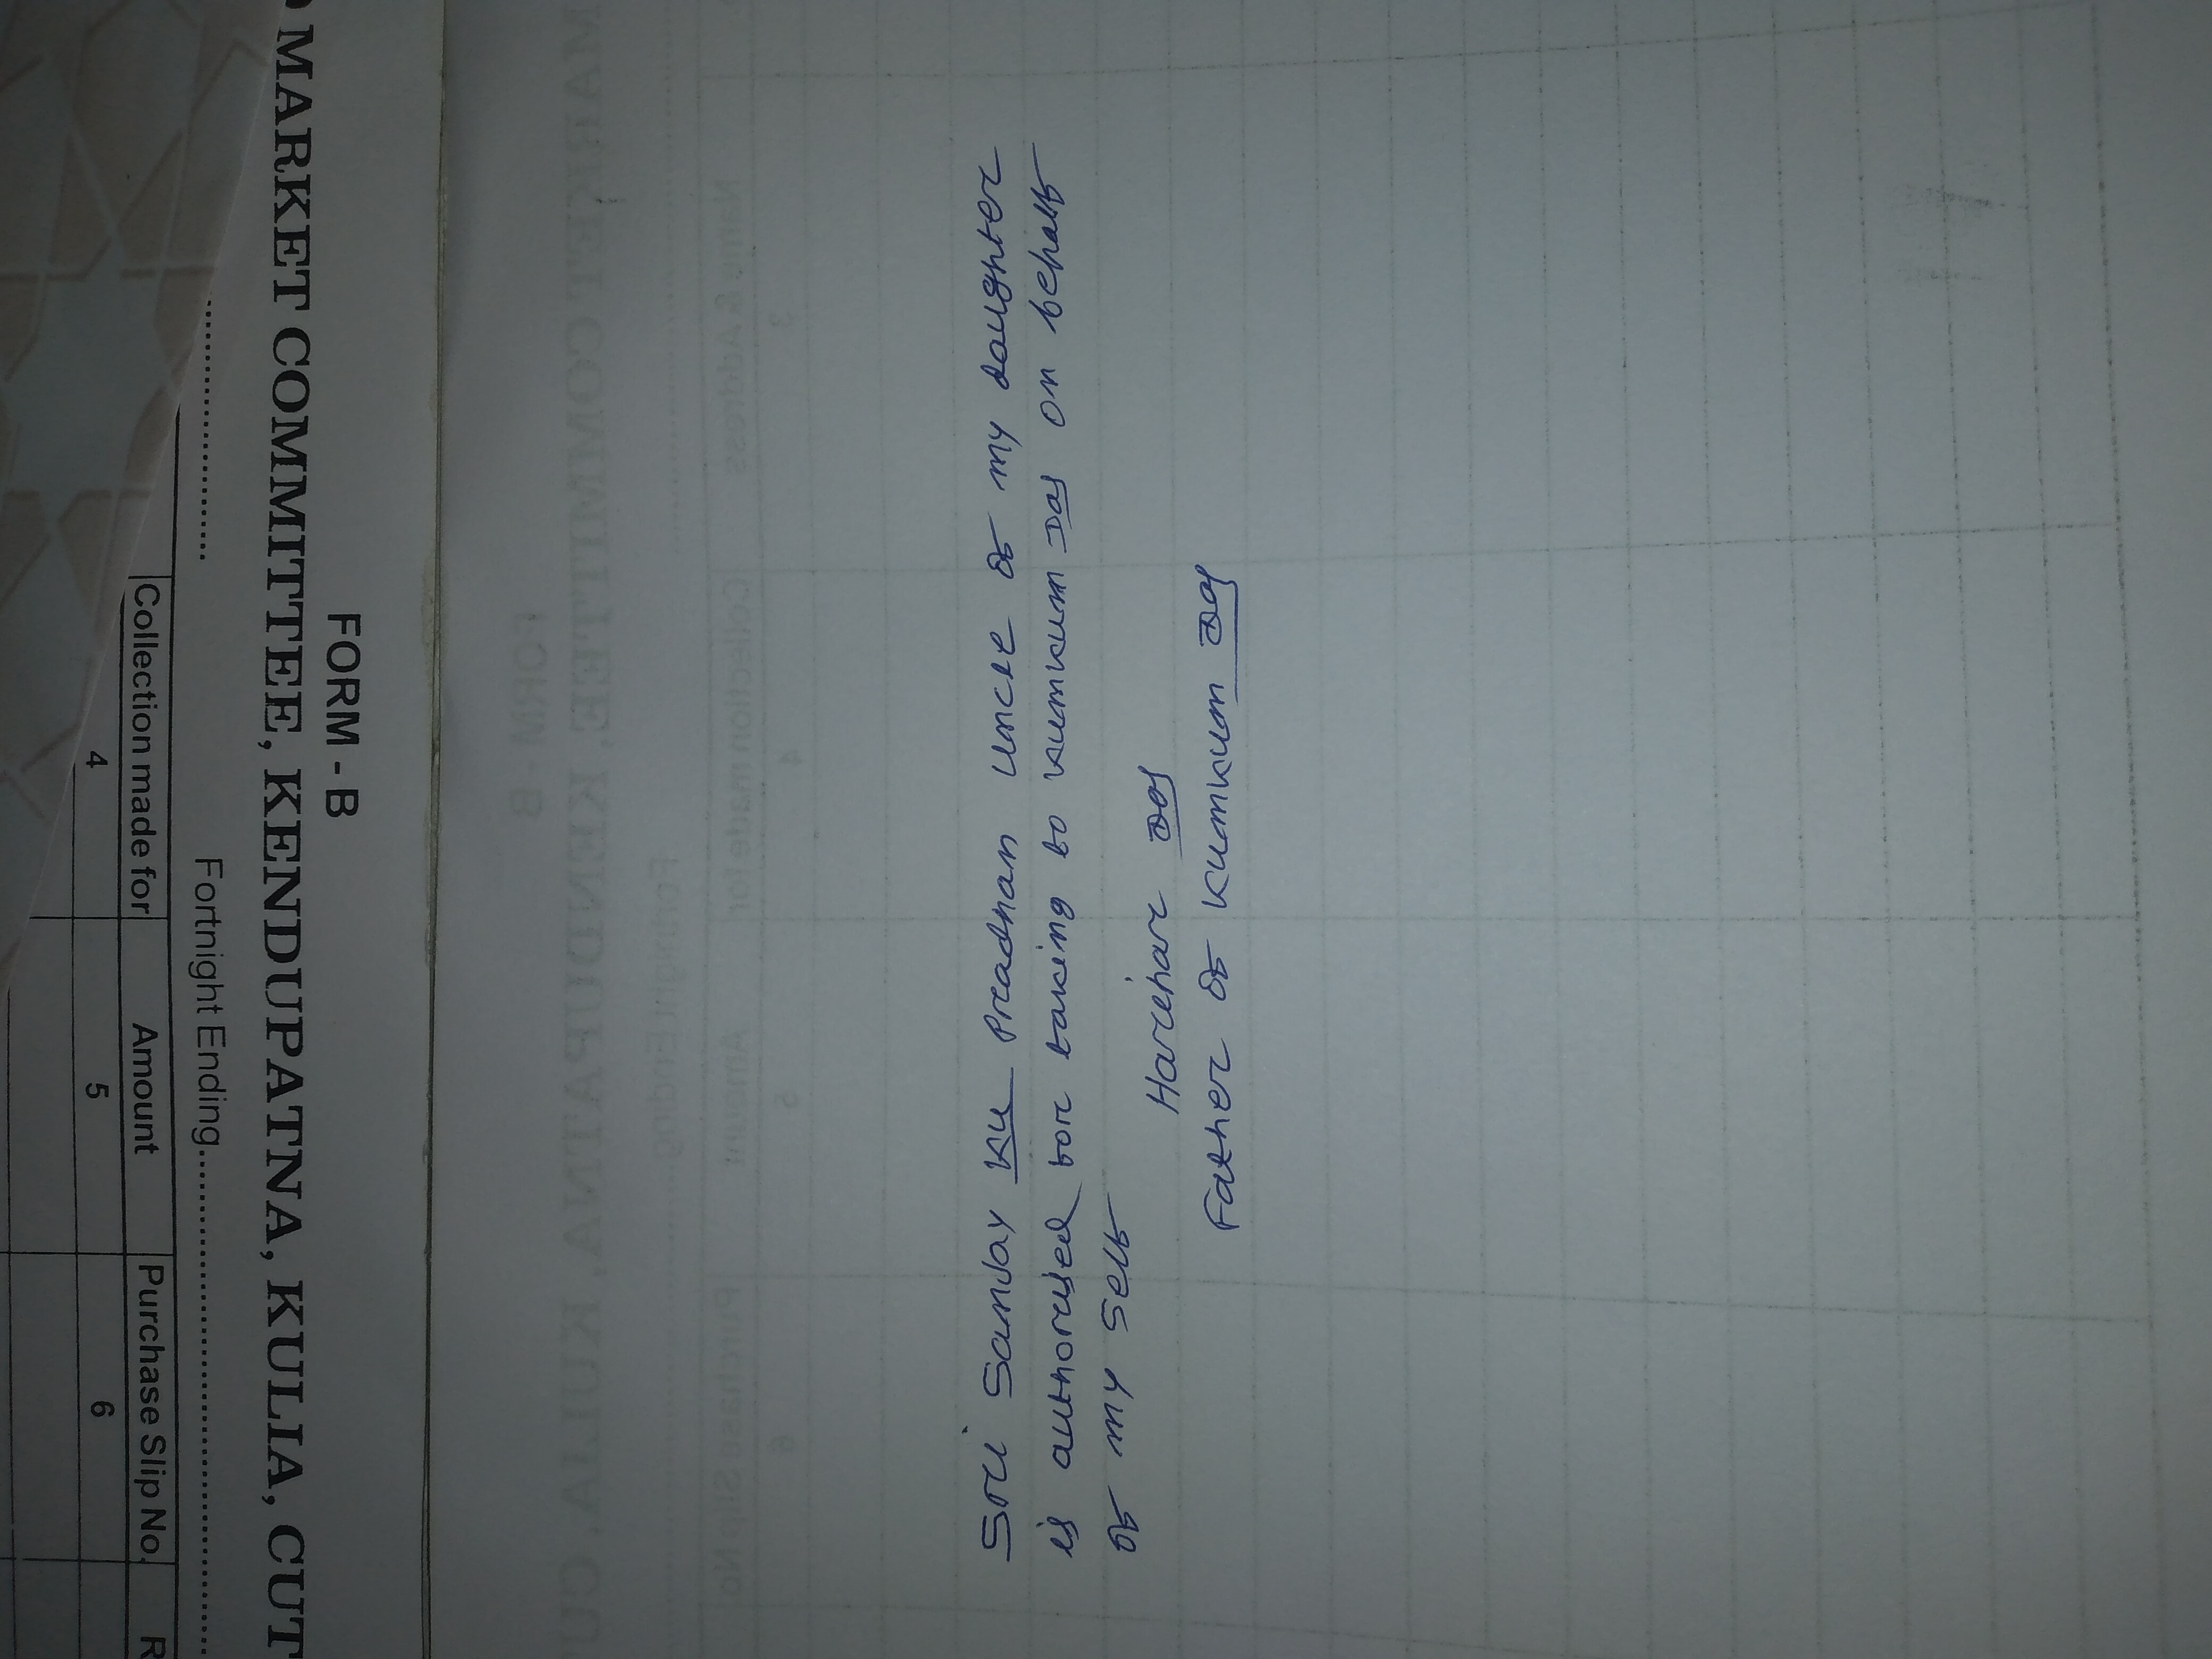 Sri Sanjay Ku Pradhan Uncle of my daughter
is authorised for taking to Kumkum Das on behalf
of my self
Harihar Das
Father of Kumkum Das
FORM - B
MARKET COMMITTEE, KENDUPATNA, KULIA, CUT
Fortnight Ending
Collection made for Amount Purchase Slip No. R
4 5 6